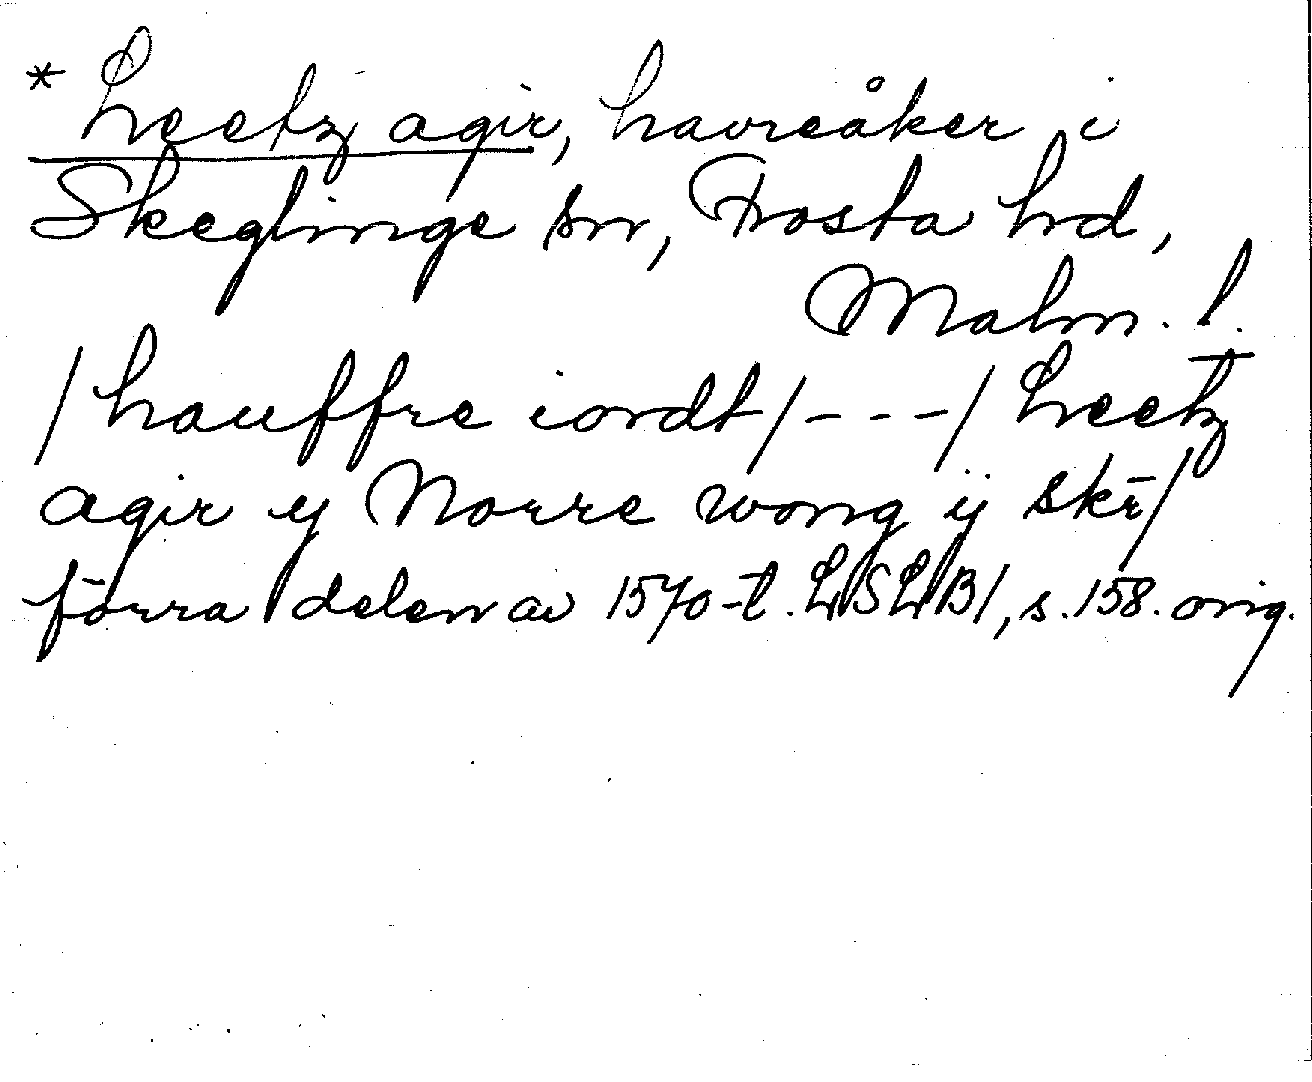 * Hveetz agir, havreåker i
Skeglinge sn, Frosta hrd,
Malm. l.
/hauffre iordt/---/hveetz
agir y Norre wong ij sk̄r/
förra delen av 1570-t. LSLB1, s. 158. orig.